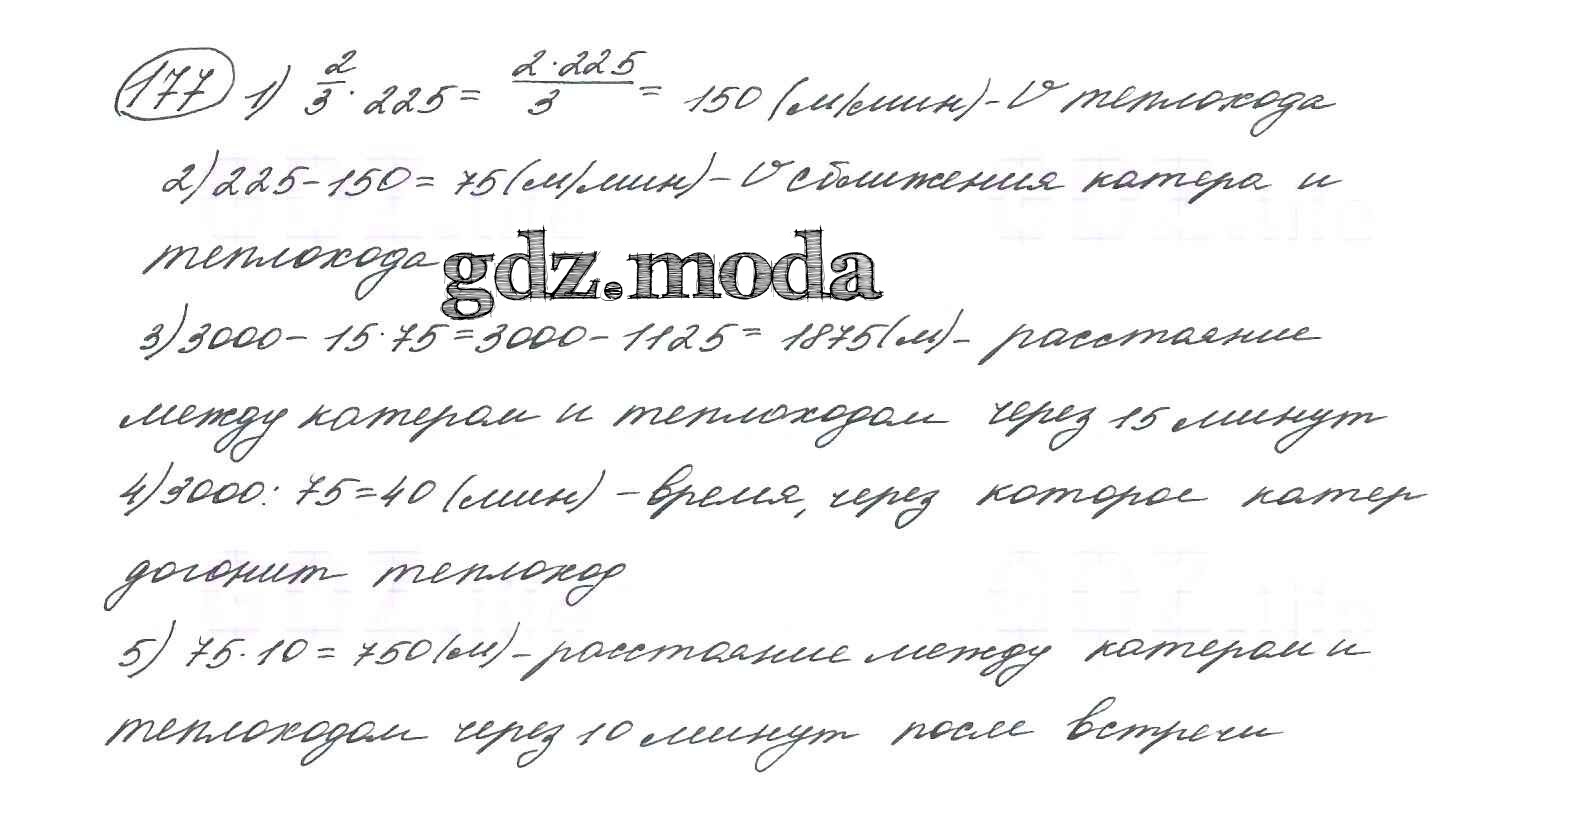 177 1) 2/3 · 225 = 2·225/3 = 150 (м/мин) - V теплохода
2) 225 - 150 = 75 (м/мин) - V сближения катера и
теплохода gdz.moda
3) 3000 - 15·75 = 3000 - 1125 = 1875 (м) - расстояние
между катером и теплоходом через 15 минут
4) 3000 : 75 = 40 (мин) - время, через которое катер
догонит теплоход
5) 75·10 = 750 (м) - расстояние между катером и
теплоходом через 10 минут после встречи